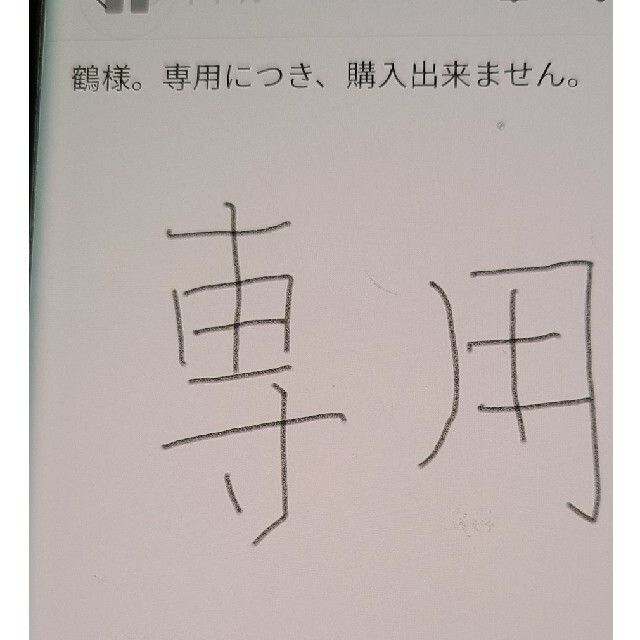 鶴様。専用につき、購入出来ません。
専用